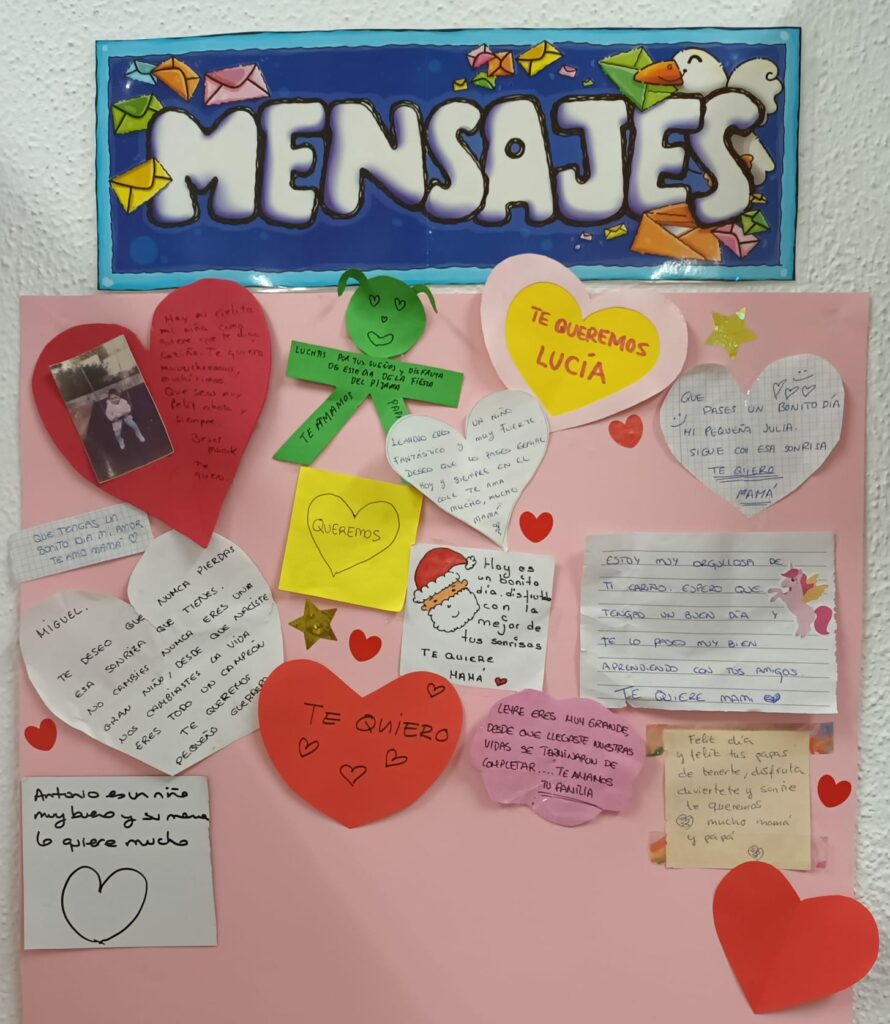 MENSAJES
Hoy mi cielito
mi niña como
quiere que te diga
cariño. Te quiero
muchísimos
Que seas muy
feliz ahora y
siempre
Besos
Te
quiero
LUCHAS POR TUS SUEÑOS Y DISFRUTA
DE ESTE DIA DE LA FIESTA
DEL PIJAMA
TE AMAMOS
TE QUEREMOS
LUCÍA
QUE
PASES UN BONITO DÍA
MI PEQUEÑA JULIA.
SIGUE CON ESA SONRISA
TE QUIERO
MAMÁ
ERES UN NIÑO
FANTÁSTICO Y MUY FUERTE
DESEO QUE LO PASES GENIAL
HOY Y SIEMPRE EN EL
COLE TE AMA
MUCHO, MUCHO
MAMÁ
QUE TENGAS UN
BONITO DIA MI AMOR
TE AMO MAMÁ
QUEREMOS
Hoy es
un bonito
día. disfruta
con la
mejor de
tus sonrisas
TE QUIERE
MAMÁ
ESTOY MUY ORGULLOSA DE
TI CARIÑO. ESPERO QUE
TENGAS UN BUEN DÍA Y
TE LO PASES MUY BIEN
APRENDIENDO CON TUS AMIGOS.
TE QUIERE MAMI
MIGUEL.
TE DESEO QUE NUNCA PIERDAS
ESA SONRISA QUE TIENES.
NO CAMBIES NUNCA ERES UN
GRAN NIÑO, DESDE QUE NACISTE
NOS CAMBIASTES LA VIDA.
ERES TODO UN CAMPEÓN
TE QUEREMOS
PEQUEÑO GUERRERO
TE QUIERO
LEYRE ERES MUY GRANDE,
DESDE QUE LLEGASTE NUESTRAS
VIDAS SE TERMINARON DE
COMPLETAR.... TE AMAMOS
TU FAMILIA
Feliz día
y feliz tus papas
de tenerte, disfruta
diviertete y sonrie
te queremos
mucho mamá
y papá
Antonio es un niño
muy bueno y su mama
lo quiere mucho